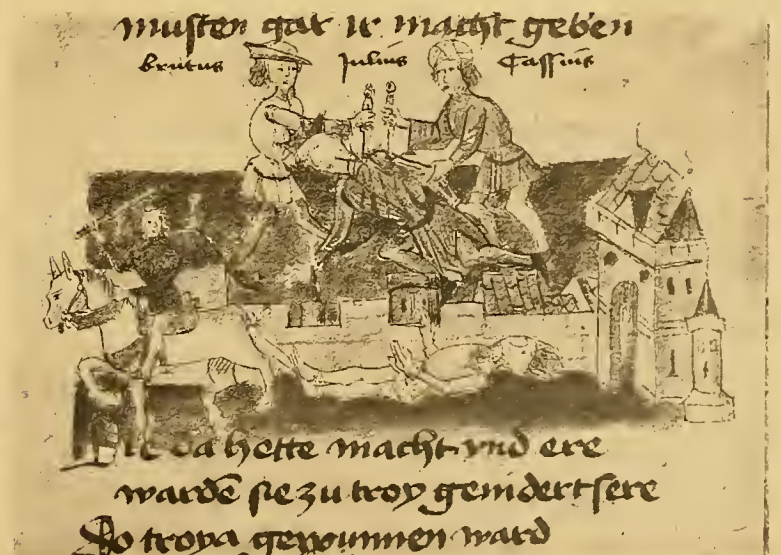 musten gar ir macht geben
brutus Julius Cassius
da hette macht vnd ere
wardē sie zu troy genidert sere
Do troya gewunnen ward